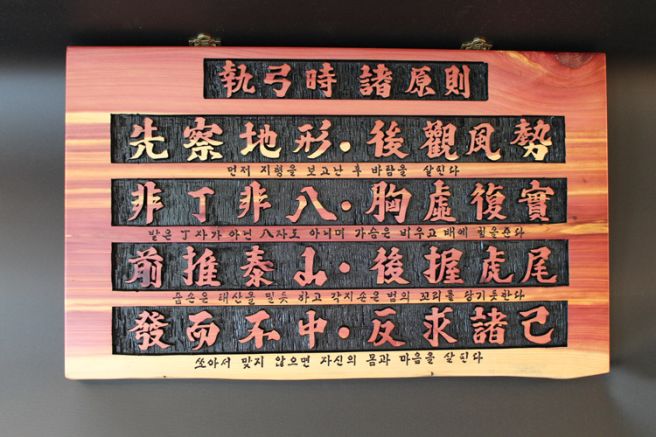 執弓時 諸原則
先察地形·後觀風勢
먼저 지형을 보고난 후 바람을 살핀다
非丁非八·胸虛復實
발은 丁자가 아닌 八자도 아니며 가슴은 비우고 배에 힘을준다
前推泰山·後握虎尾
줌손은 태산을 밀듯 하고 각지손은 범의 꼬리를 당기듯한다
發而不中·反求諸己
쏘아서 맞지 않으면 자신의 몸과 마음을 살핀다